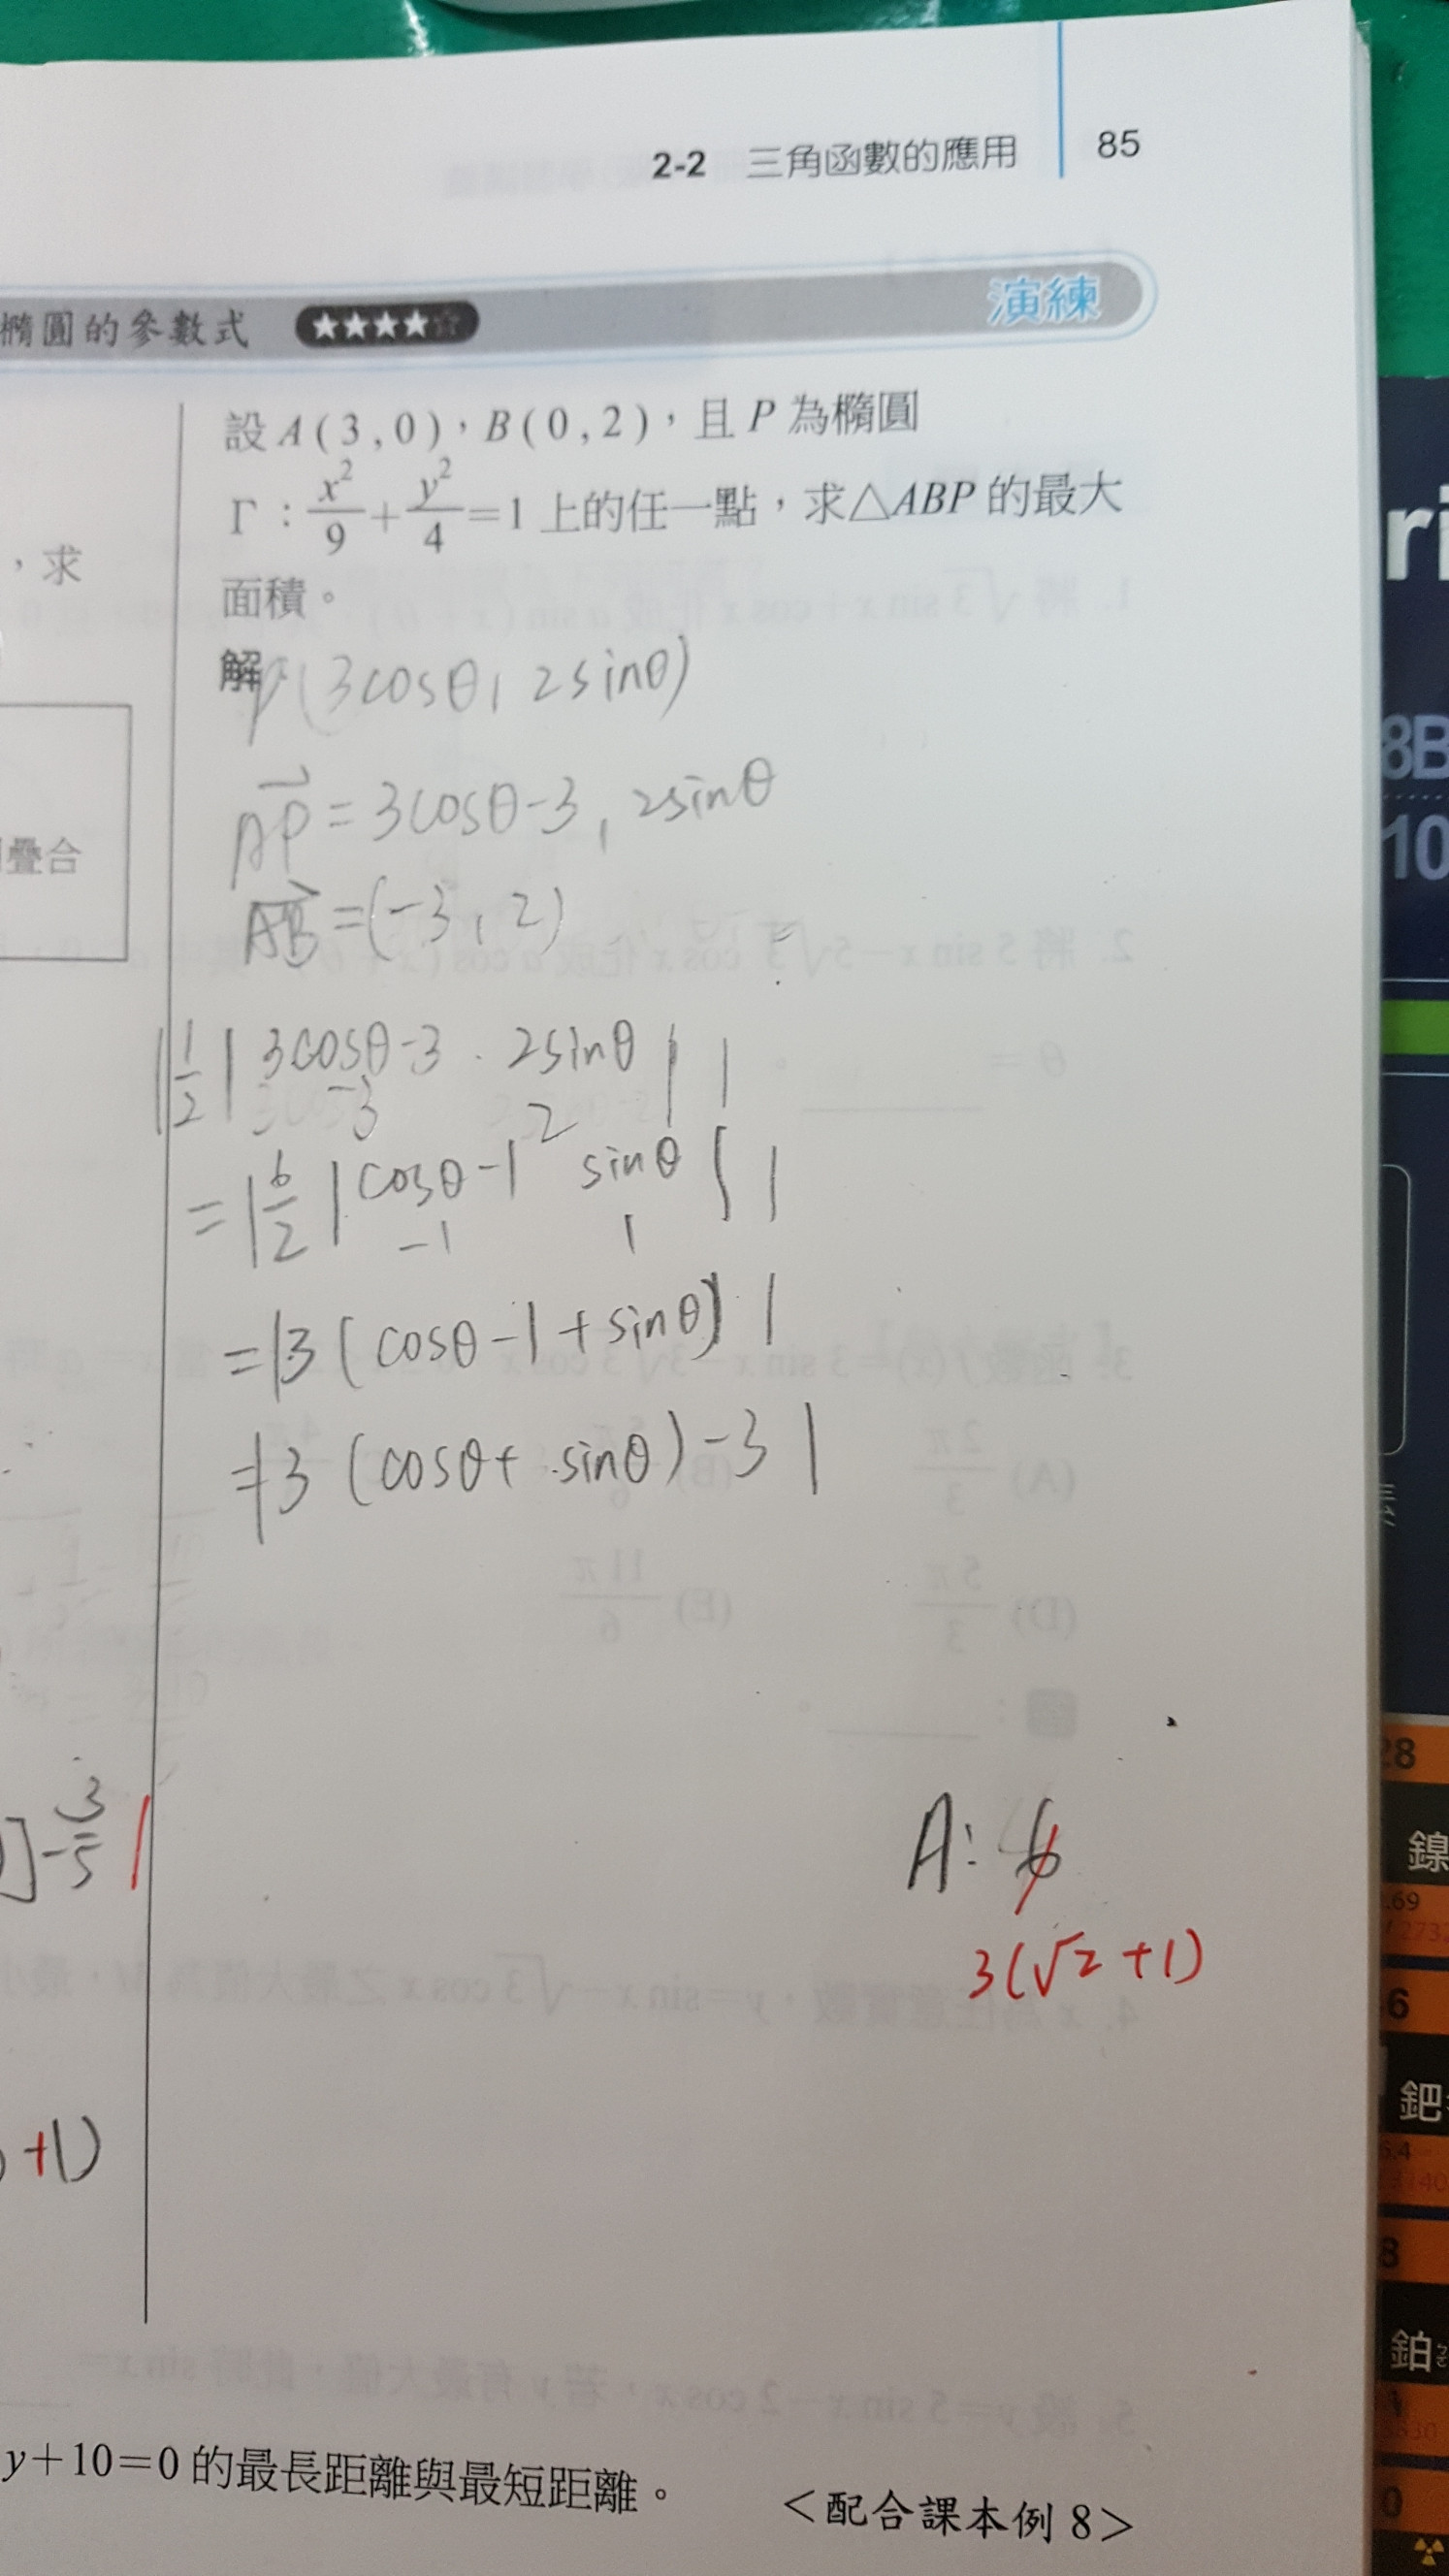 2-2 三角函數的應用 85
橢圓的參數式 ★★★★☆ 演練
，求
疊合
設 A(3,0)，B(0,2)，且 P 為橢圓
Γ：x²/9+y²/4=1 上的任一點，求△ABP 的最大
面積。
解 P(3cosθ, 2sinθ)
AP = 3cosθ-3, 2sinθ
AB = (-3, 2)
|1/2 | 3cosθ-3 2sinθ | |
-3 2
= |6/2 | cosθ-1 sinθ | |
-1 1
= |3 (cosθ-1+sinθ) |
= |3 (cosθ+sinθ)-3 |
]-3/5 |
A: 6
3(√2+1)
+1)
y+10=0 的最長距離與最短距離。
<配合課本例 8>
ri
8B
10
28
鎳
.69
6
鈀
8
鉑
0